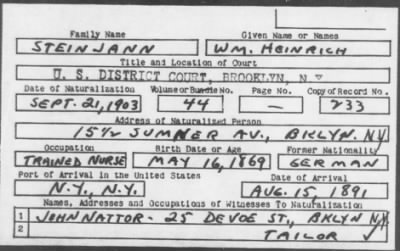 Family Name Given Name or Names
STEINJANN WM. HEINRICH
Title and Location of Court
U. S. DISTRICT COURT, BROOKLYN, N.Y.
Date of Naturalization Volume or Bundle No. Page No. Copy of Record No.
SEPT. 21, 1903 44 — 233
Address of Naturalized Person
15 1/2 SUMNER AV., BKLYN. N.Y.
Occupation Birth Date or Age Former Nationality
TRAINED NURSE MAY 16, 1869 GERMAN
Port of Arrival in the United States Date of Arrival
N.Y., N.Y. AUG. 15, 1891
Names, Addresses and Occupations of Witnesses To Naturalization
1 JOHN NATTOR - 25 DEVOE ST., BKLYN N.Y.
2 TAILOR ✓